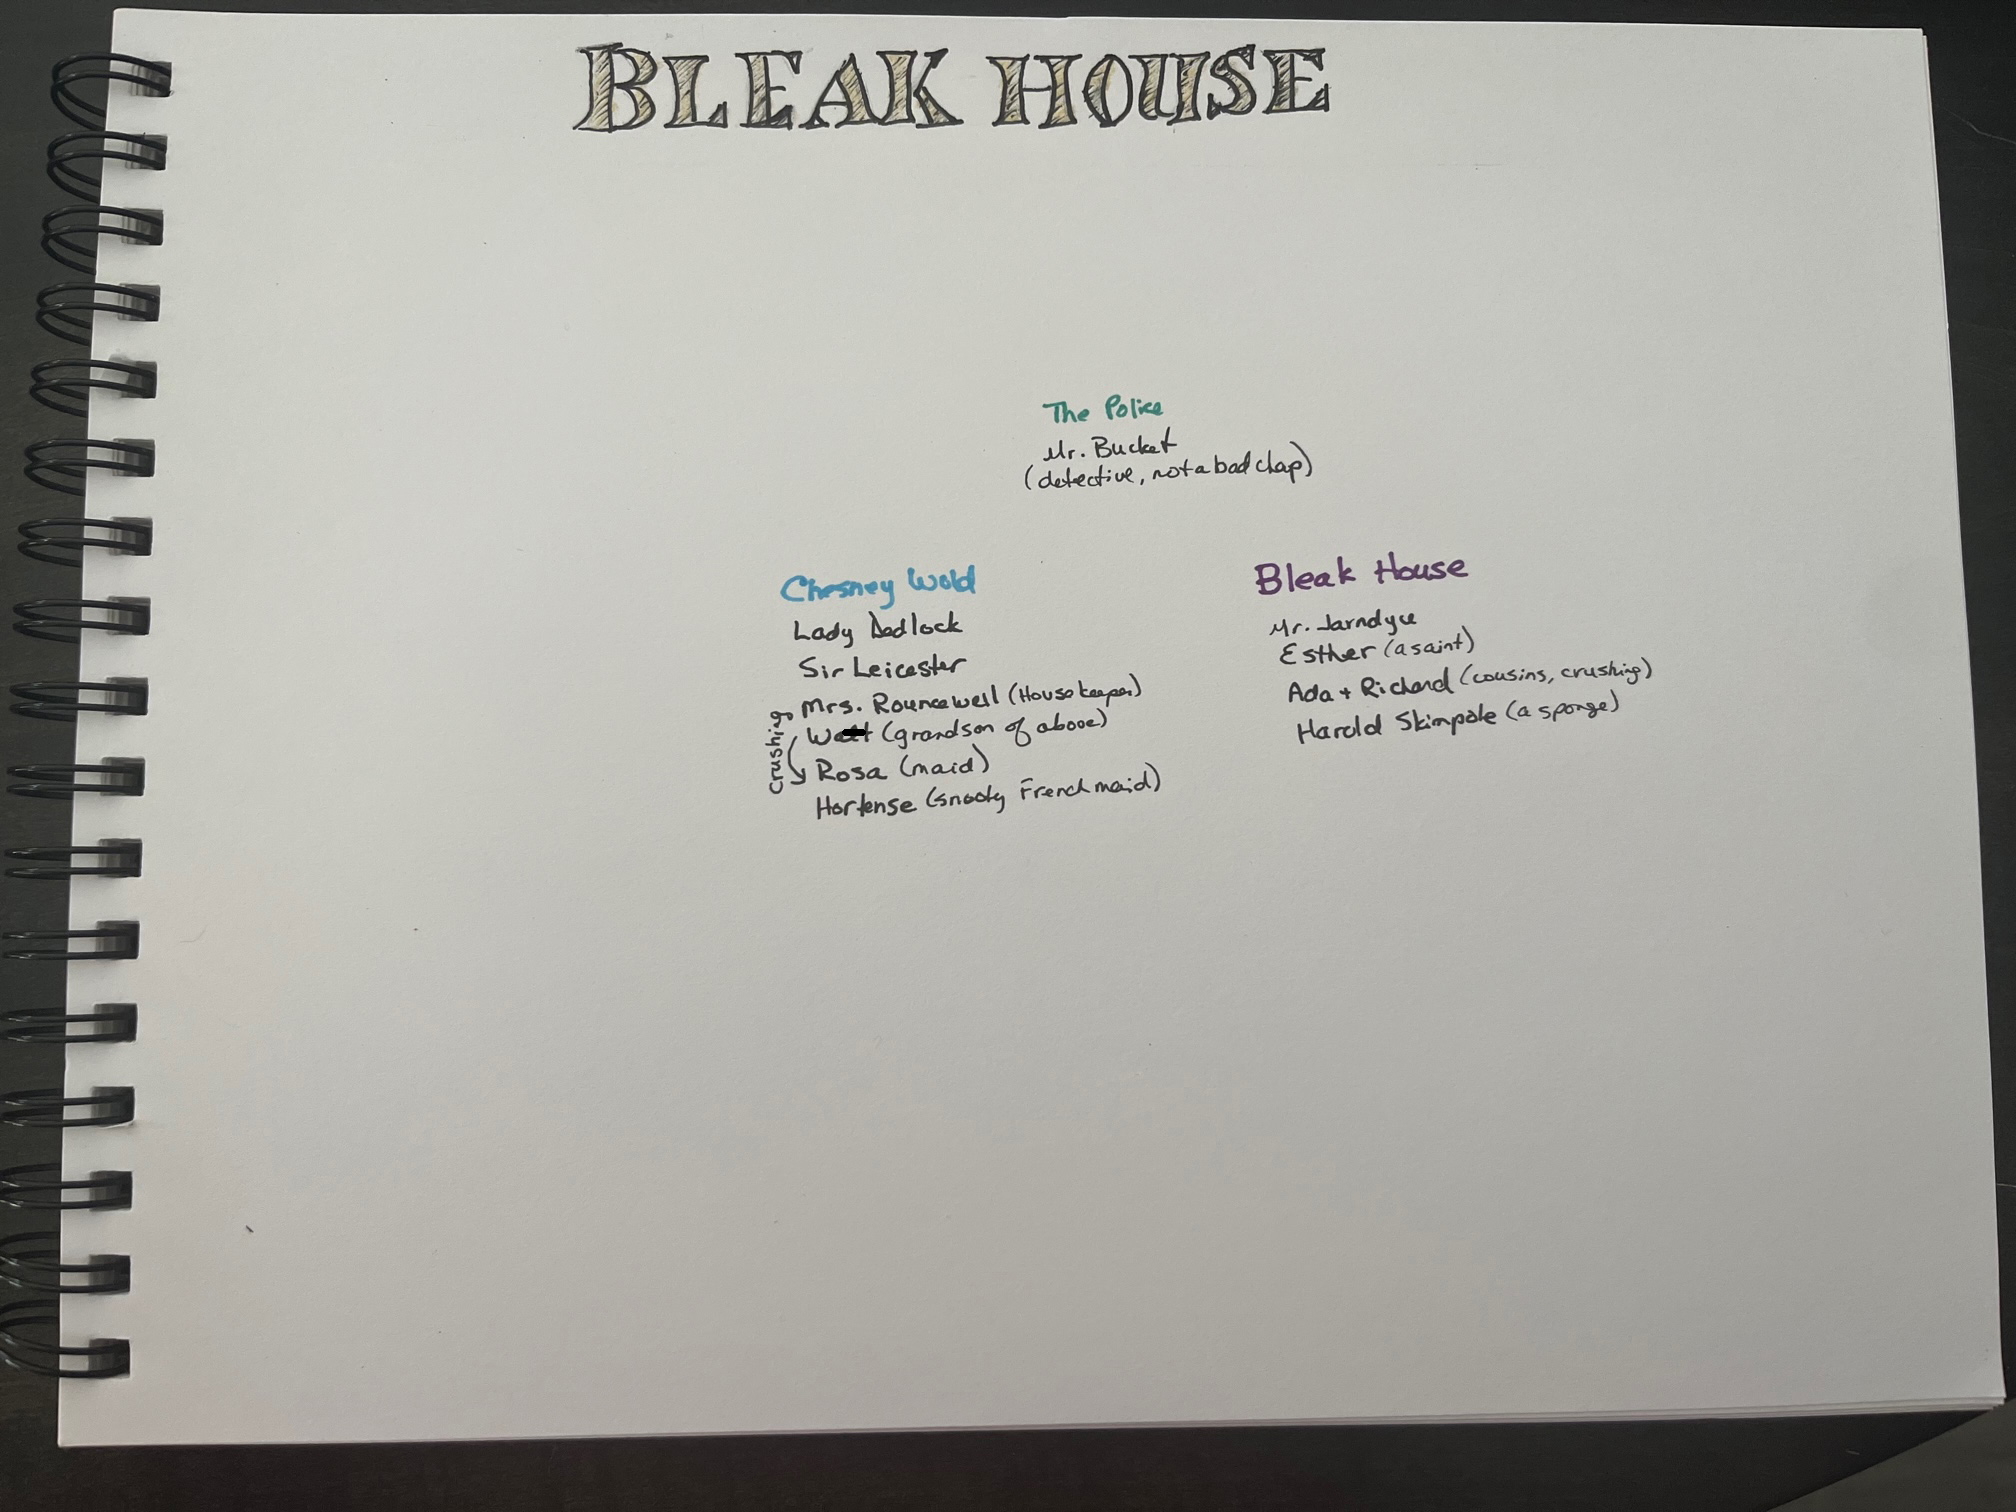 BLEAK HOUSE
The Police
Mr. Bucket
(detective, not a bad chap)
Chesney Wold
Lady Dedlock
Sir Leicester
Mrs. Rouncewell (Housekeeper)
(grandson of above)
Rosa (maid)
Hortense (snooty French maid)
crushing
Bleak House
Mr. Jarndyce
Esther (a saint)
Ada + Richard (cousins, crushing)
Harold Skimpole (a sponge)